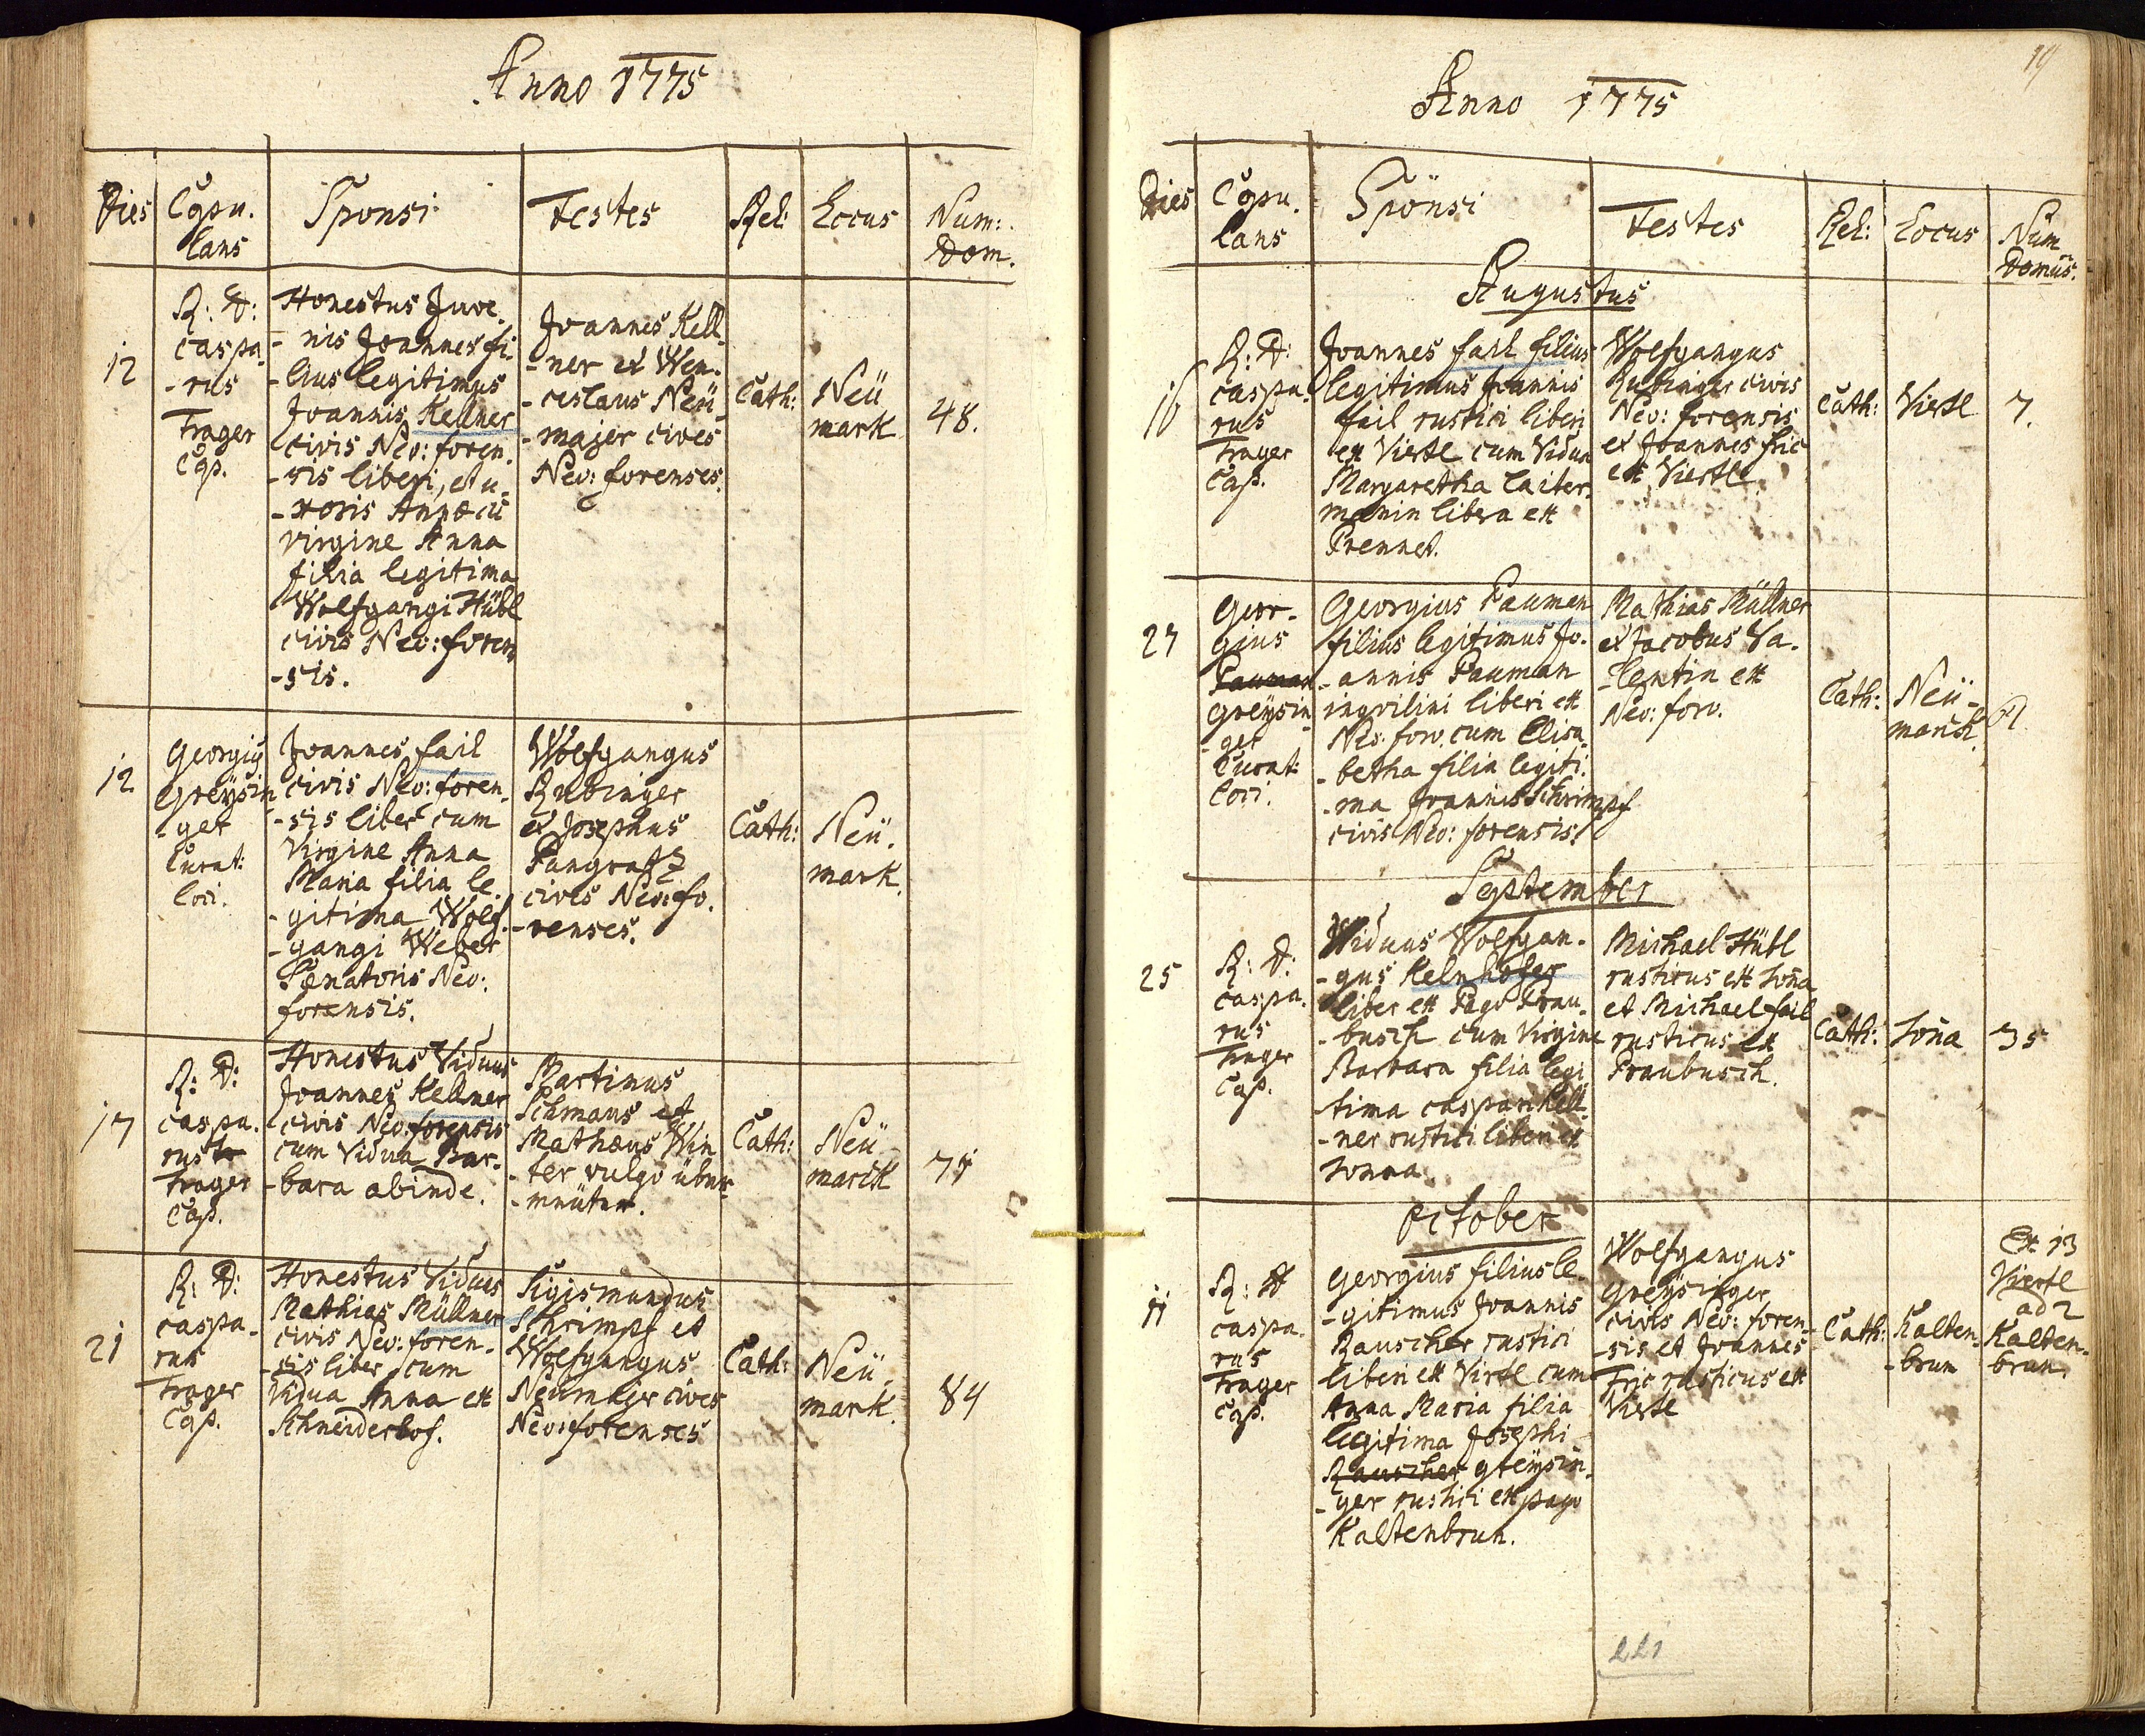 Anno 1775
Dies
Copu.
lans
Sponsi
Testes
Rel:
Locus
Num:
Dom.
12
R: D:
Caspa
-rus
Trager
Cap.
Honestus Juve
-nis Joannes fi
-lius legitimus
Joannis Kellner
civis Neo: foren
-sis liberi, et u
-xoris Annæ cū
virgine Anna
filia legitima
Wolfgangi Hübl
civis Neo: foren
-sis.
Joannes Kell
-ner et Wen-
-ceslaus Neü
-majer cives
Neo: forenses.
Cath:
Neü
mark
48.
12
Georgiꝰ
Greÿsin
-ger
Curat:
loci.
Joannes fail
civis Neo: foren-
-sis liber cum
Virgine Anna
Maria filia le
-gitima Wolf-
-gangi Weber
Senatoris Neo:
forensis.
Wolfgangus
Rubinger
et Josephus
Pangratz
cives Neo: fo.
-renses.
Cath:
Neü.
mark.
17
R: D:
Caspa.
rus
Trager
Cap.
Honestus Viduus
Joannes Kellner
civis Neo: forensis
cum Vidua Bar-
-bara abinde.
Martinus
Schmaus et
Mathæus Win
-ter vulgo
Cath:
Neü
marck
21
R: D:
Caspa-
rus
Trager
Cap.
Honestus Viduus
Mathias Müllner
civis Neo: foren-
-sis liber cum
Vidua Anna ex
Schneiderhof.
Sigismundus
Schrimpf et
Wolfgangus
Neümajer cives
Neo: forenses
Cath:
Neü-
mark.
84
19
Anno 1775
Dies
Copu.
lans
Sponsi
Testes
Rel:
Locus
Num
Domus.
Augustus
16
R: D:
Caspa.
rus
Trager
Cap.
Joannes fail filius
legitimus Joannis
fail rustici liberi
ex Viertl cum Vidua
Margaretha Laiter
manin libera ex
Prennet.
Wolfgangus
Rubinger civis
Neo: forensis
et Joannes fric
ex Viertl
Cath:
Viertl
7.
27
Geor-
gius
Pauman
Greÿsin
-ger
Curat:
loci.
Georgius Pauman
filius legitimus Jo-
-annis Pauman
inquilini liberi ex
Neo: foro. cum Elisa
-betha filia legiti.
-ma Joannis Schrimpf
civis Neo: forensis.
Mathias Müllner
et Jacobus Va-
-lentin ex
Neo: foro.
Cath:
Neü-
marck
September
25
R: D:
Caspa.
rus
Trager
Cap.
Viduus Wolfgan-
-gus Kelnhofer
liber ex Pago Prau-
-busch cum Virgine
Barbara filia legi
-tima Caspari Kell
-ner rustici liberi ex
Honna
Michael Hübl
rusticus ex Hoña
et Michael fail
rusticus ex
Praubusch.
Cath:
Hoña
35
October
11
R: D
Caspa.
rus
Trager
Cap.
Georgius filius le-
-gitimus Joannis
Rauscher rustici
liberi ex Virtl cum
Anna Maria filia
legitima Josephi
Rauscher greÿsin-
-ger rustici ex pago
Kaltenbrun.
Wolfgangus
Greÿsinger
civis Neo: foren-
-sis et Joannes
Fric rusticus ex
Viertl
Cath:
Kalten-
-brun
Ex 13
Viertl
ad 2
Kalten-
brun
221